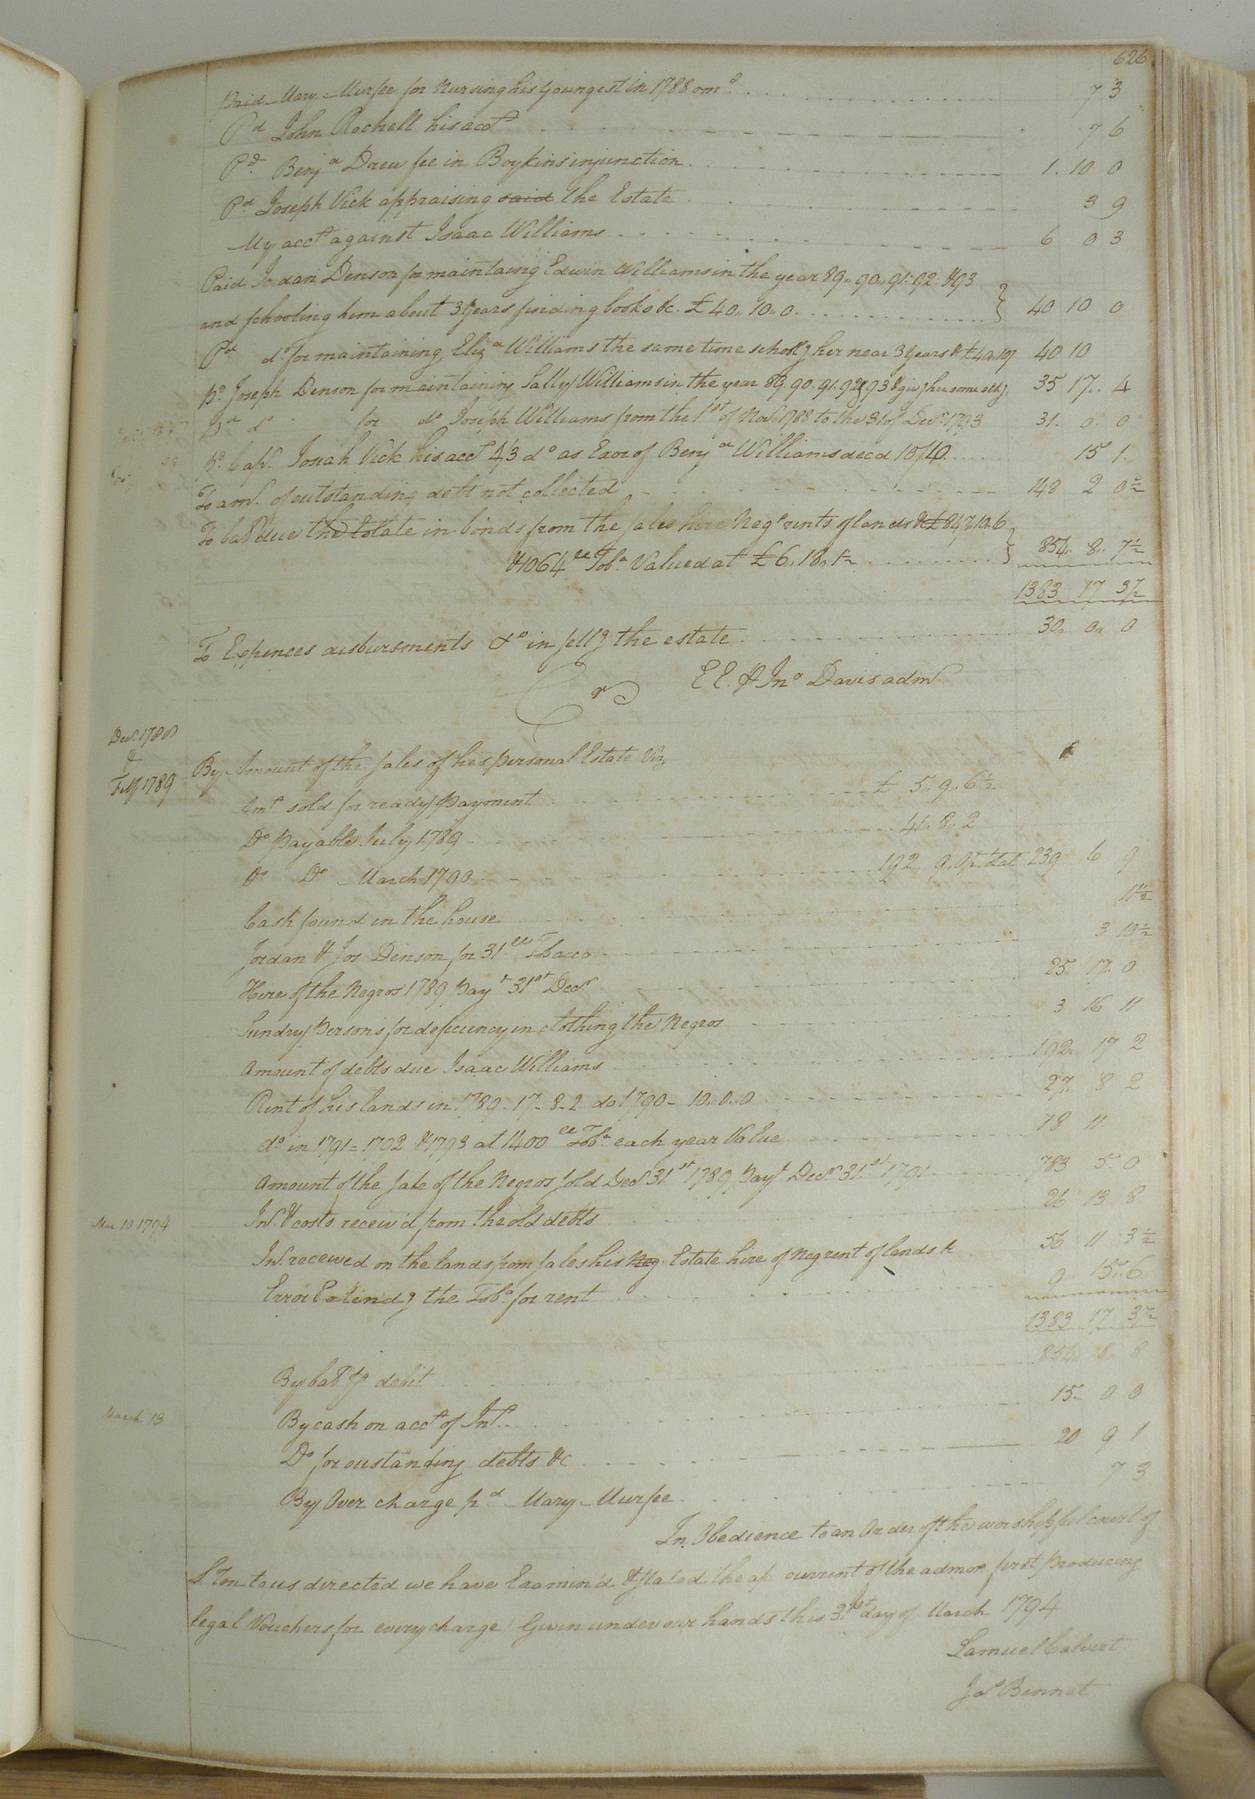 626
Paid Mary Murfee for Nursing his youngest in 1788 omd 7 3
Pd John Rochell his acct 7 6
Pd Benja Drew fee in Boykins injunction 1. 10 0
Pd Joseph Vick appraising said the Estate 3 9
My acct against Isaac Williams 6 0 3
Paid Jordan Denson for maintaing Edwin Williams in the year 89. 90. 91. 92. & 93
and schooling him about 3 Years finding books &c. £40. 10. 0. 40 10 0
Pd do for maintaining Eliza Williams the same time schollg her near 3 years 40 10
Pd Joseph Denson for maintaining Sally Williams in the year 89. 90. 91. 92 & 93 & givg her some 35 17. 4
Pd do for do Joseph Williams from the 1st of Novr 1788 to the 31 of Decr 1793 31. 0. 0
pd Josiah Vick his acct 4/3 do as Exor of Benja Williams decd 10/10 15 1.
To amt. of outstanding debt not collected 148 2 0½
To bal due the Estate in bonds from the sales hire Negs rents of lands &c £847. 10. 6
& 1064 lb Toba Valued at £6. 18. 1½ 854. 8. 7½
1383 17 3½
To Expences disbursments &c in sellg the estate 30. 0. 0
E E. P Jno Davis admr
Cr
Decr. 1788
&
Feby 1789
By Amount of the sales of his personal Estate Viz
Amt sold for ready payment £ 5. 9. 6½
Do Payable July 1789 41. 8. 2
Do Do March 1790 192 9. 0½ total 239 6 9
Cash found in the house 11½
Jordan & Jos Denson for 31 lb Tobacco 3 10½
Hire of the Negros 1789 payt 31st Decr 25. 17. 0
Sundry Persons for deficiency in clothing the Negros 3 16 11
Amount of debts due Isaac Williams 192. 17 2
Rent of his lands in 1789. 17. 8. 2 do 1790 - 10. 0. 0 27. 8 2
do in 1791 = 1792 & 1793 at 1400 lb Toba each year Value 18 11
Amount of the sale of the Negros sold Decr 31st 1789 payt Decr 31st 1791 783 5. 0
Mar 10 1794
Int. & costs receiv'd from the old debts 26 13 8
Int received on the lands from sales his Neg. Estate hire of Neg rent of lands &c 56 11 3½
Error Extendg the Toba for rent 0 15. 6
1383 17 3½
By bal pr debit 854. 8. 8
March 13
By cash on acct of Int. 15. 0 0
Do for oustanding debts &c 20 9 1
By Over charge pd Mary Murfee 7 3
In Obedience to an Order of the worshipful court of
S'Ton to us directed we have Examin'd & stated the ac current of the admor first producing
legal Vouchers for every charge Given under our hands this 31st day of March 1794
Samuel Calvert
Jas Bennet